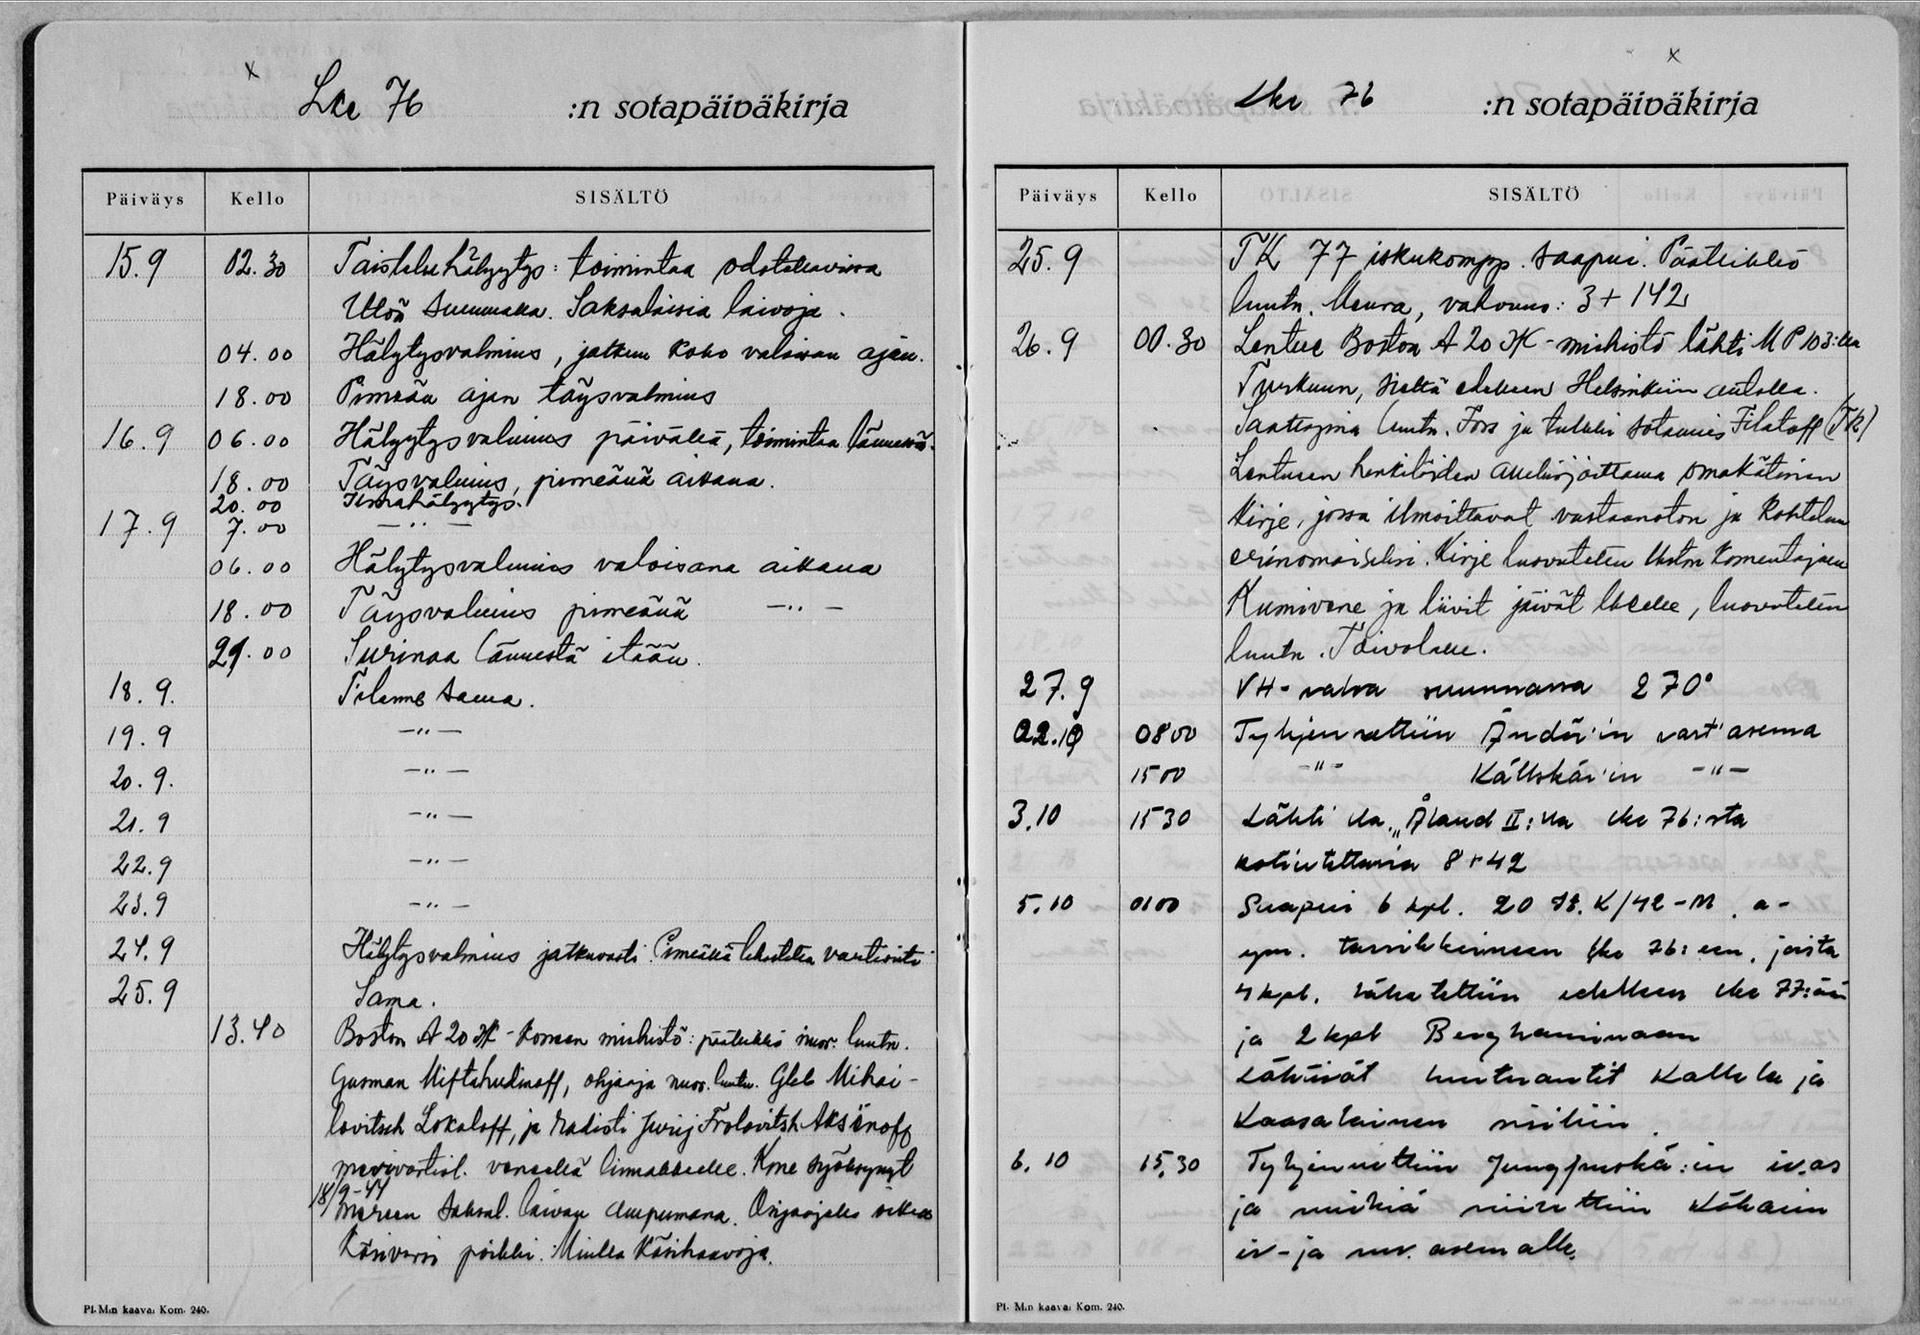 Lke 76 :n sotapäiväkirja
Päiväys Kello SISÄLTÖ
15.9 02.30 Taisteluhälyytys: toimintaa odotettavissa
Utön suunnalla. Saksalaisia laivoja.
04.00 Hälytysvalmius, jatkuu koko valoisan ajan.
18.00 Pimeän ajan täysvalmius
16.9 06.00 Hälyytysvalmius päivällä, toimintaa lännessä.
18.00 Täysvalmius, pimeänä aikana.
20.00 Ilmahälyytys.
17.9 7.00 — " —
06.00 Hälytysvalmius valoisana aikana
18.00 Täysvalmius pimeänä — " —
21.00 Surinaa lännestä itään.
18.9. Tilanne sama.
19.9 — " —
20.9. — " —
21.9 — " —
22.9 — " —
23.9 — " —
24.9 Hälytysvalmius jatkuvasti. Pimeällä tehostettu vartiointi
25.9 Sama.
13.40 Boston A 20 -koneen miehistö: päällikkö nuor. luutn.
Gusman Miftahudinoff, ohjaaja nuor. luutn. Gleb Mihai-
lovitsch Lokaloff, ja radisti Jurij Frolovitsh Aksënoff
merivartiol. veneellä linnakkeelle. Kone syöksynyt
18/9-44
mereen saksal. laivan ampumana. Ohjaajalla oikea
käsivarsi poikki. Muilla käsihaavoja.
Pl. M:n kaava: Kom. 240.
Lke 76 :n sotapäiväkirja
Päiväys Kello SISÄLTÖ
25.9 TK 77 iskukomp. saapui. Päällikkö
luutn. Meura, vahvuus: 3+142
26.9 00.30 Lentue Boston A 20 -miehistö lähti MP 103:lla
Turkuun, sieltä edelleen Helsinkiin autolla.
Saattajina luutn. Fors ja tulkki sotamies Filatoff (TK)
Lentueen henkilöiden allekirjoittama omakätinen
kirje, jossa ilmoittavat vastaanoton ja kohtelun
erinomaiseksi. Kirje luovutettu komentajalle
Kumivene ja liivit jäivät lkeelle, luovutettu
luutn. Toivolalle.
27.9 VH-valoa suunnassa 270°
02.10 0800 Tyhjennettiin Ändö'in vart'asema
1500 -"- Källskär'in -"-
3.10 1530 Lähti "Åland II:lla lke 76:sta
kotiutettavia 8+42
5.10 0100 Saapui 6 kpl. 20 K/42-M. a-
ym. tarvikkeineen lke 76:een, joista
4 kpl. lähetettiin edelleen lke 77:ään
ja 2 kpl Berghaminaan
Lähtivät luutnantit Kallela ja
Kaasalainen siviiliin.
6.10 15,30 Tyhjennettiin Jungfruskä:in iv.as
ja miehiä siirettiin Kökarin
iv- ja mv. asemalle.
Pl. M:n kaava: Kom. 240.